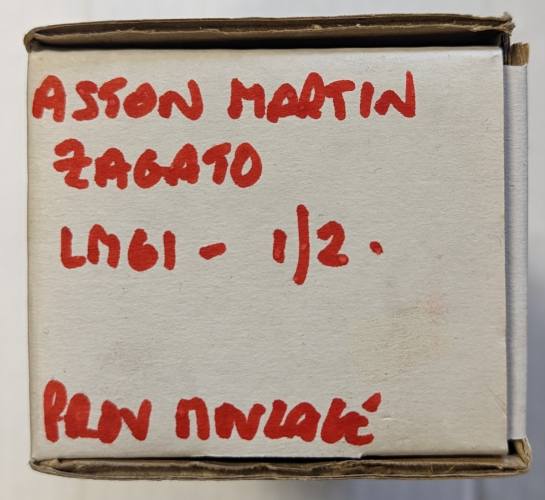 ASTON MARTIN
ZAGATO
LM61 - 1/2.
PROV MOULAGÉ